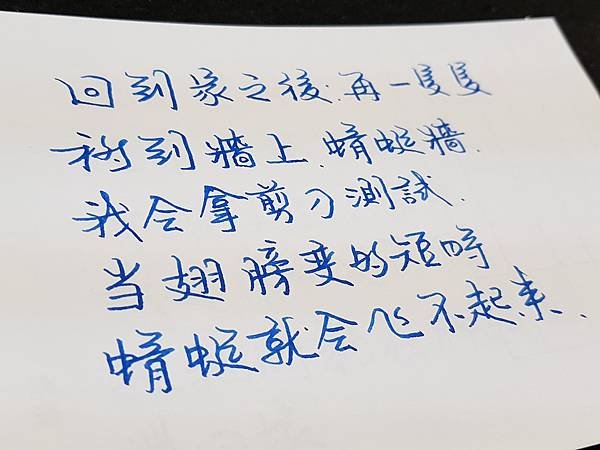 回到家之後.再一隻隻
移到牆上.蜻蜓牆.
我会拿剪刀測試.
当翅膀变的短時
蜻蜓就会飞不起来.